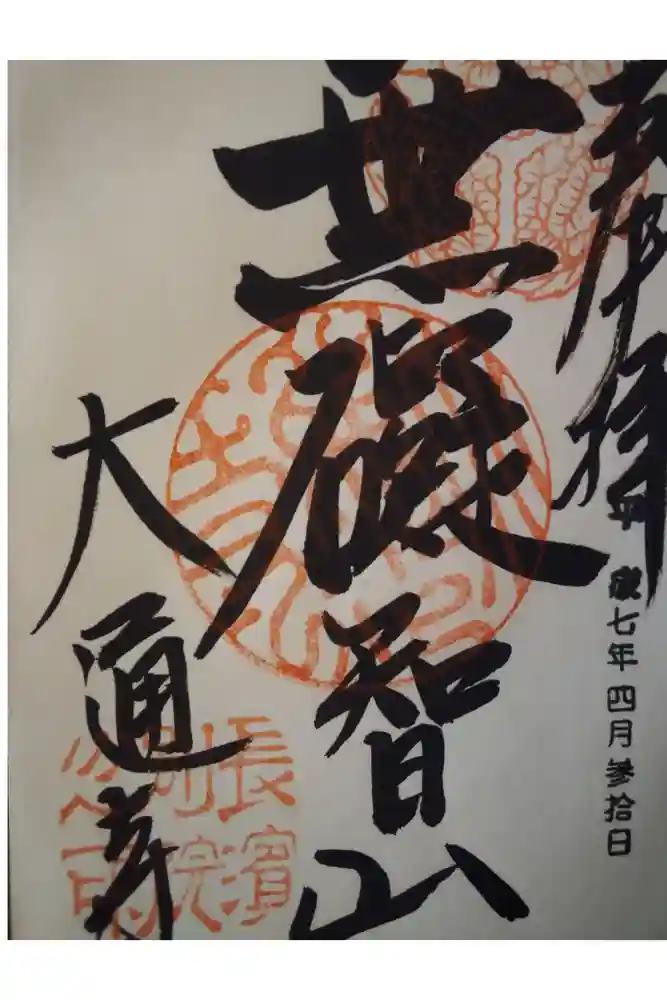 奉拝
平成七年四月参拾日
無礙智山
大通寺
長濱
別院